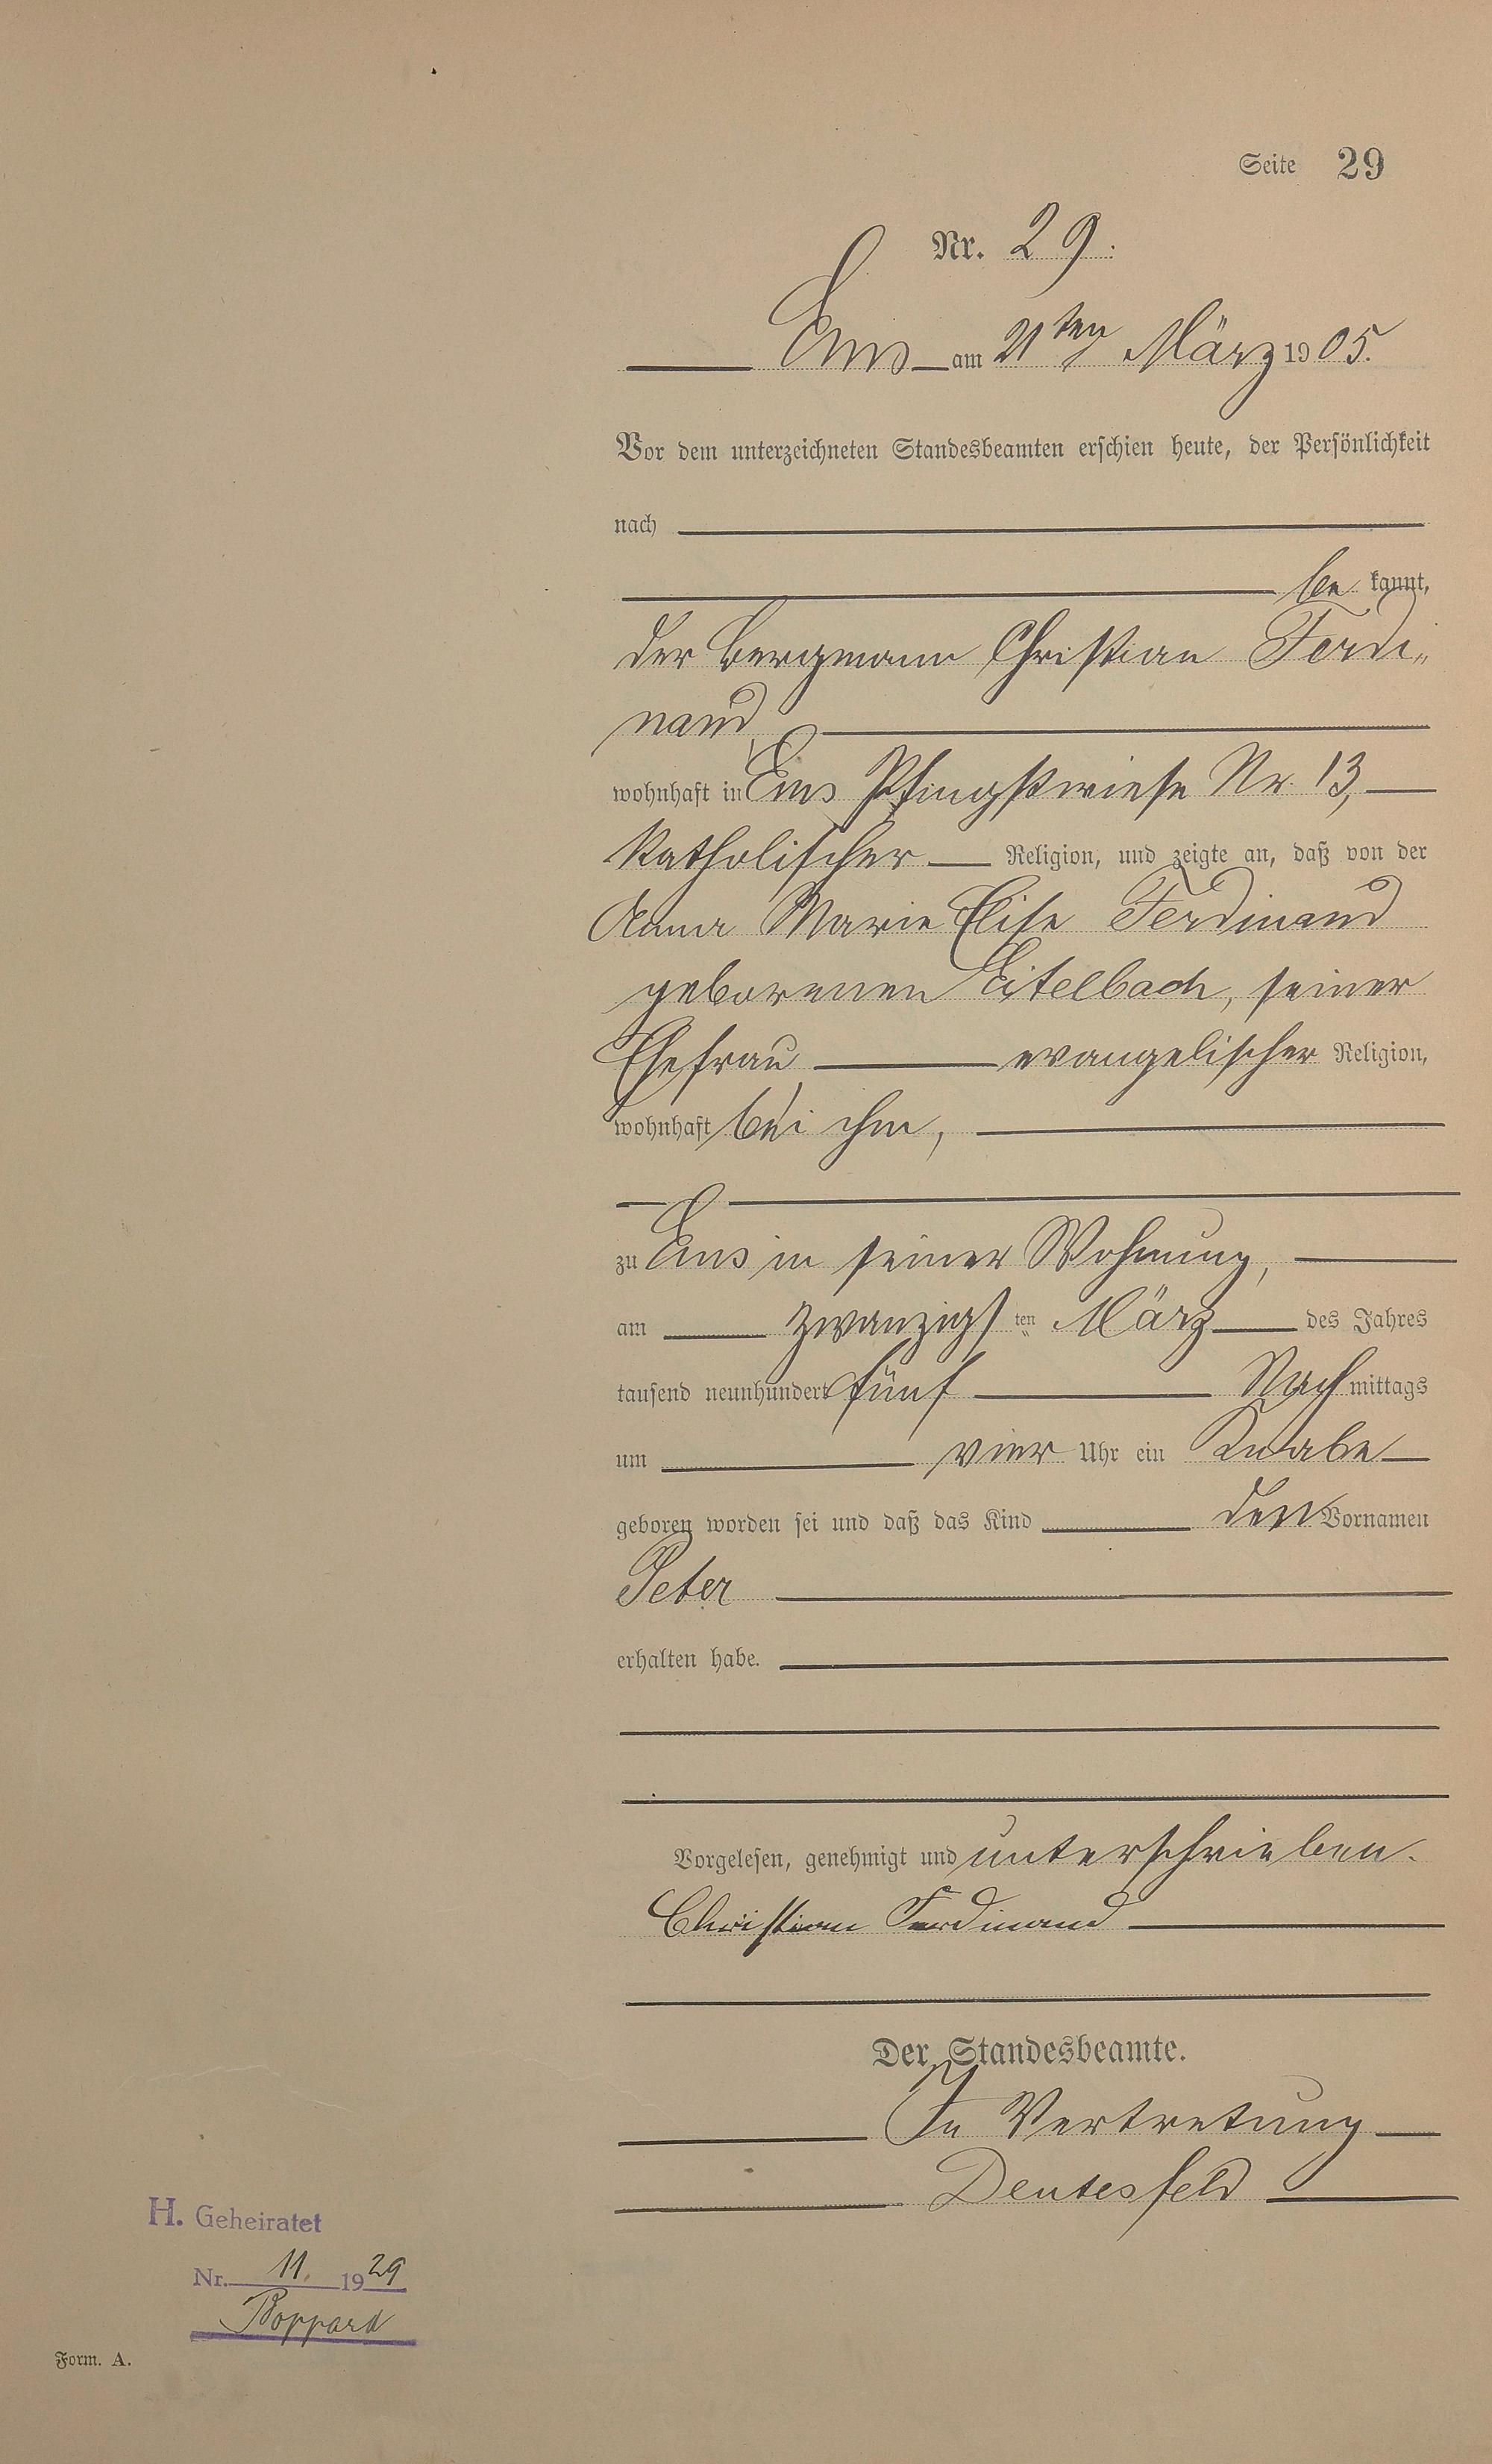 Seite 29
Nr. 29.
Ems am 21ten März 1905.
Vor dem unterzeichneten Standesbeamten erschien heute, der Persönlichkeit
nach
be kannt,
der Bergmann Christian Ferdi„
nand,
wohnhaft in Ems Pfingstwiese Nr. 13,
katholischer Religion, und zeigte an, daß von der
Anna Marie Elise Ferdinand
geborenen Eitelbach, seiner
Ehefrau evangelischer Religion,
wohnhaft bei ihm,
zu Ems in seiner Wohnung,
am zwanzigsten März des Jahres
tausend neunhundert fünf Nachmittags
um vier Uhr ein Knabe
geboren worden sei und daß das Kind den Vornamen
Peter
erhalten habe.
Vorgelesen, genehmigt und unterschrieben.
Christian Ferdinand
Der Standesbeamte.
In Vertretung
Deutesfeld
H. Geheiratet
Nr. 11. 1929
Boppard
Form. A.